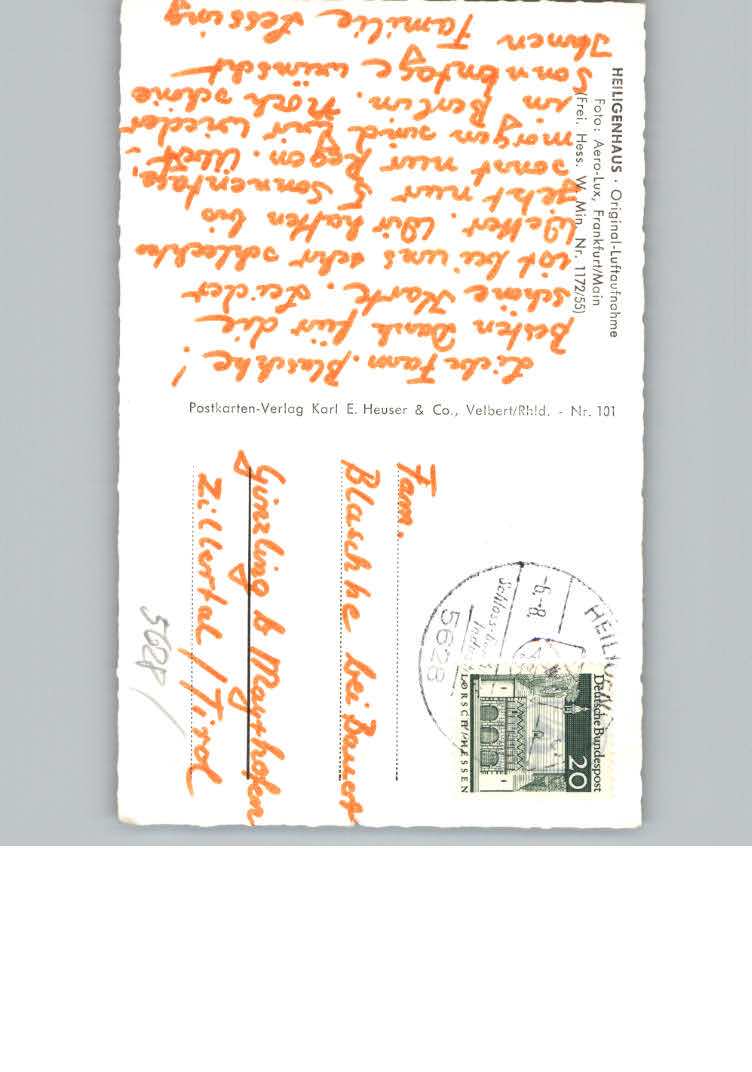 HEILIGENHAUS · Original-Luftaufnahme
Foto: Aero-Lux, Frankfurt/Main
(Frei. Hess. W. Min. Nr. 1172/55)
Liebe Fam. Blaschke!
Besten Dank für die
schöne Karte. Leider
ist bei uns sehr schlechtes
Wetter. Wir hatten bis
jetzt nur 5 Sonnentage,
sonst nur Regen.
morgen sind wir wieder
in Berlin. Noch schöne
Sonnentage wünscht
Ihnen Familie Lessing
Postkarten-Verlag Karl E. Heuser & Co., Velbert/Rhld. - Nr. 101
Fam.
Blaschke bei Bauer
Ginzling b Mayrhofen
Zillertal / Tirol
5628/
HEILIGENHAUS
-6.-8.
5628
Deutsche Bundespost
20
LORSCH/HESSEN